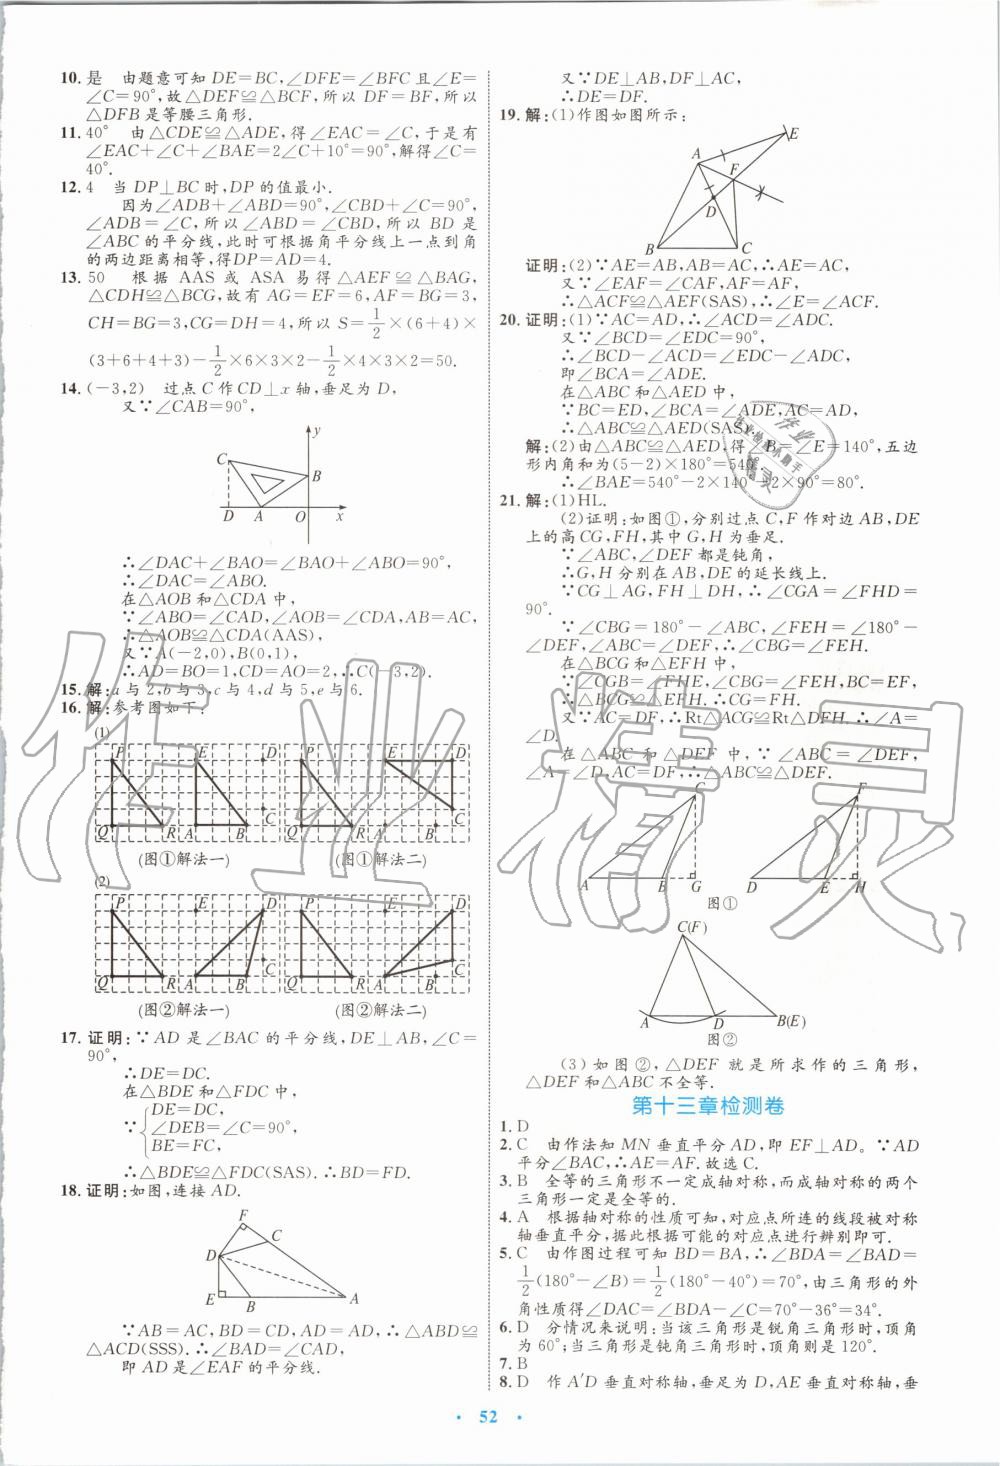 10.是 由题意可知 DE=BC,∠DFE=∠BFC 且∠E=
∠C=90°,故△DEF≌△BCF,所以 DF=BF,所以
△DFB 是等腰三角形.
11.40° 由△CDE≌△ADE,得∠EAC=∠C,于是有
∠EAC+∠C+∠BAE=2∠C+10°=90°,解得∠C=
40°.
12.4 当 DP⊥BC 时,DP 的值最小.
因为∠ADB+∠ABD=90°,∠CBD+∠C=90°,
∠ADB=∠C,所以∠ABD=∠CBD,所以 BD 是
∠ABC 的平分线,此时可根据角平分线上一点到角
的两边距离相等,得DP=AD=4.
13.50 根据 AAS 或 ASA 易得△AEF≌△BAG,
△CDH≌△BCG,故有 AG=EF=6,AF=BG=3,
CH=BG=3,CG=DH=4,所以 S=1/2×(6+4)×
(3+6+4+3)-1/2×6×3×2-1/2×4×3×2=50.
14.(-3,2) 过点 C 作 CD⊥x 轴,垂足为 D,
又∵∠CAB=90°,
y
C
B
D A O x
∴∠DAC+∠BAO=∠BAO+∠ABO=90°,
∴∠DAC=∠ABO.
在△AOB 和△CDA 中,
∵∠ABO=∠CAD,∠AOB=∠CDA,AB=AC,
∴△AOB≌△CDA(AAS),
又∵A(-2,0),B(0,1),
∴AD=BO=1,CD=AO=2,∴C(-3,2).
15.解:a 与 2,b 与 3,c 与 4,d 与 5,e 与 6.
16.解:参考图如下:
(1)
P E D P E D
C C
Q R A B Q R A B
(图①解法一) (图①解法二)
(2)
P E D P E D
C C
Q R A B Q R A B
(图②解法一) (图②解法二)
17.证明:∵AD 是∠BAC 的平分线,DE⊥AB,∠C=
90°,
∴DE=DC.
在△BDE 和△FDC 中,
DE=DC,
∵{∠DEB=∠C=90°,
BE=FC,
∴△BDE≌△FDC(SAS).∴BD=FD.
18.证明:如图,连接 AD.
F
C
D
E B A
∵AB=AC,BD=CD,AD=AD,∴△ABD≌
△ACD(SSS).∴∠BAD=∠CAD,
即 AD 是∠EAF 的平分线.
又∵DE⊥AB,DF⊥AC,
∴DE=DF.
19.解:(1)作图如图所示:
E
A
F
D
B C
证明:(2)∵AE=AB,AB=AC,∴AE=AC,
又∵∠EAF=∠CAF,AF=AF,
∴△ACF≌△AEF(SAS),∴∠E=∠ACF.
20.证明:(1)∵AC=AD,∴∠ACD=∠ADC.
又∵∠BCD=∠EDC=90°,
∴∠BCD-∠ACD=∠EDC-∠ADC,
即∠BCA=∠ADE.
在△ABC 和△AED 中,
∵BC=ED,∠BCA=∠ADE,AC=AD,
∴△ABC≌△AED(SAS).
解:(2)由△ABC≌△AED,得∠B=∠E=140°,五边
形内角和为(5-2)×180°=540°.
∴∠BAE=540°-2×140°-2×90°=80°.
21.解:(1)HL.
(2)证明:如图①,分别过点 C,F 作对边 AB,DE
上的高 CG,FH,其中 G,H 为垂足.
∵∠ABC,∠DEF 都是钝角,
∴G,H 分别在 AB,DE 的延长线上.
∵CG⊥AG,FH⊥DH,∴∠CGA=∠FHD=
90°.
∵∠CBG=180°-∠ABC,∠FEH=∠180°-
∠DEF,∠ABC=∠DEF,∴∠CBG=∠FEH.
在△BCG 和△EFH 中,
∵∠CGB=∠FHE,∠CBG=∠FEH,BC=EF,
∴△BCG≌△EFH.∴CG=FH.
又∵AC=DF,∴Rt△ACG≌Rt△DFH.∴∠A=
∠D.
在△ABC 和△DEF 中,∵∠ABC=∠DEF,
∠A=∠D,AC=DF,∴△ABC≌△DEF.
C F
A B G D E H
图①
C(F)
A D B(E)
图②
(3)如图②,△DEF 就是所求作的三角形,
△DEF 和△ABC 不全等.
第十三章检测卷
1.D
2.C 由作法知 MN 垂直平分 AD,即 EF⊥AD。∵AD
平分∠BAC,∴AE=AF.故选 C.
3.B 全等的三角形不一定成轴对称,而成轴对称的两个
三角形一定是全等的.
4.A 根据轴对称的性质可知,对应点所连的线段被对称
轴垂直平分,据此根据可能的对应点进行辨别即可.
5.C 由作图过程可知 BD=BA,∴∠BDA=∠BAD=
1/2(180°-∠B)=1/2(180°-40°)=70°,由三角形的外
角性质得∠DAC=∠BDA-∠C=70°-36°=34°.
6.D 分情况来说明:当该三角形是锐角三角形时,顶角
为 60°;当三角形是钝角三角形时,顶角则是 120°.
7.B
8.D 作 A′D 垂直对称轴,垂足为 D,AE 垂直对称轴,垂
· 52 ·
作业精灵